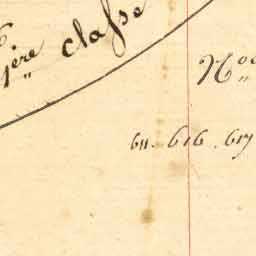 1ère classe
Nos
611. 616. 617